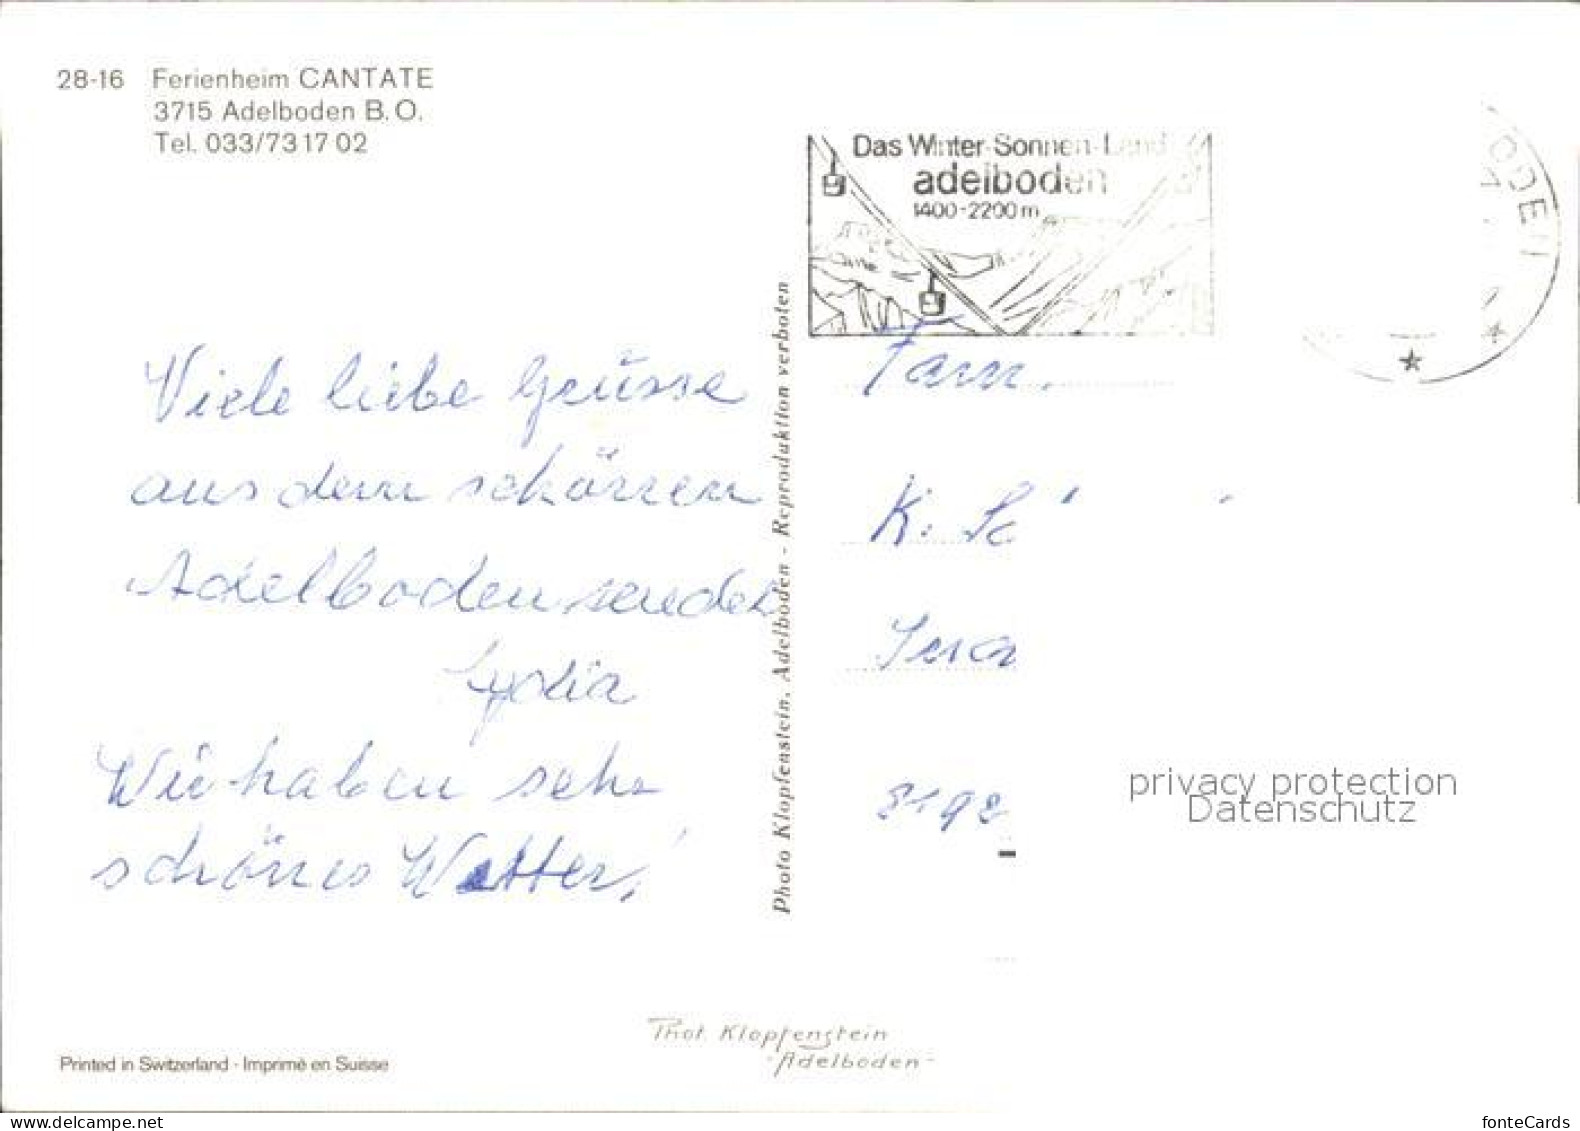 28-16 Ferienheim CANTATE
3715 Adelboden B.O.
Tel. 033/73 17 02
Das Winter-Sonnen-Land
adelboden
1400-2200 m
ODEN
Viele liebe Grüsse
aus dem schönen
Adelboden sendet
Lydia
Wir haben sehr
schönes Wetter!
Photo Klopfenstein, Adelboden - Reproduktion verboten
Fam.
K. Sc
privacy protection
Datenschutz
Phot. Klopfenstein
Adelboden
Printed in Switzerland · Imprimé en Suisse
www.delcampe.net
fonteCards